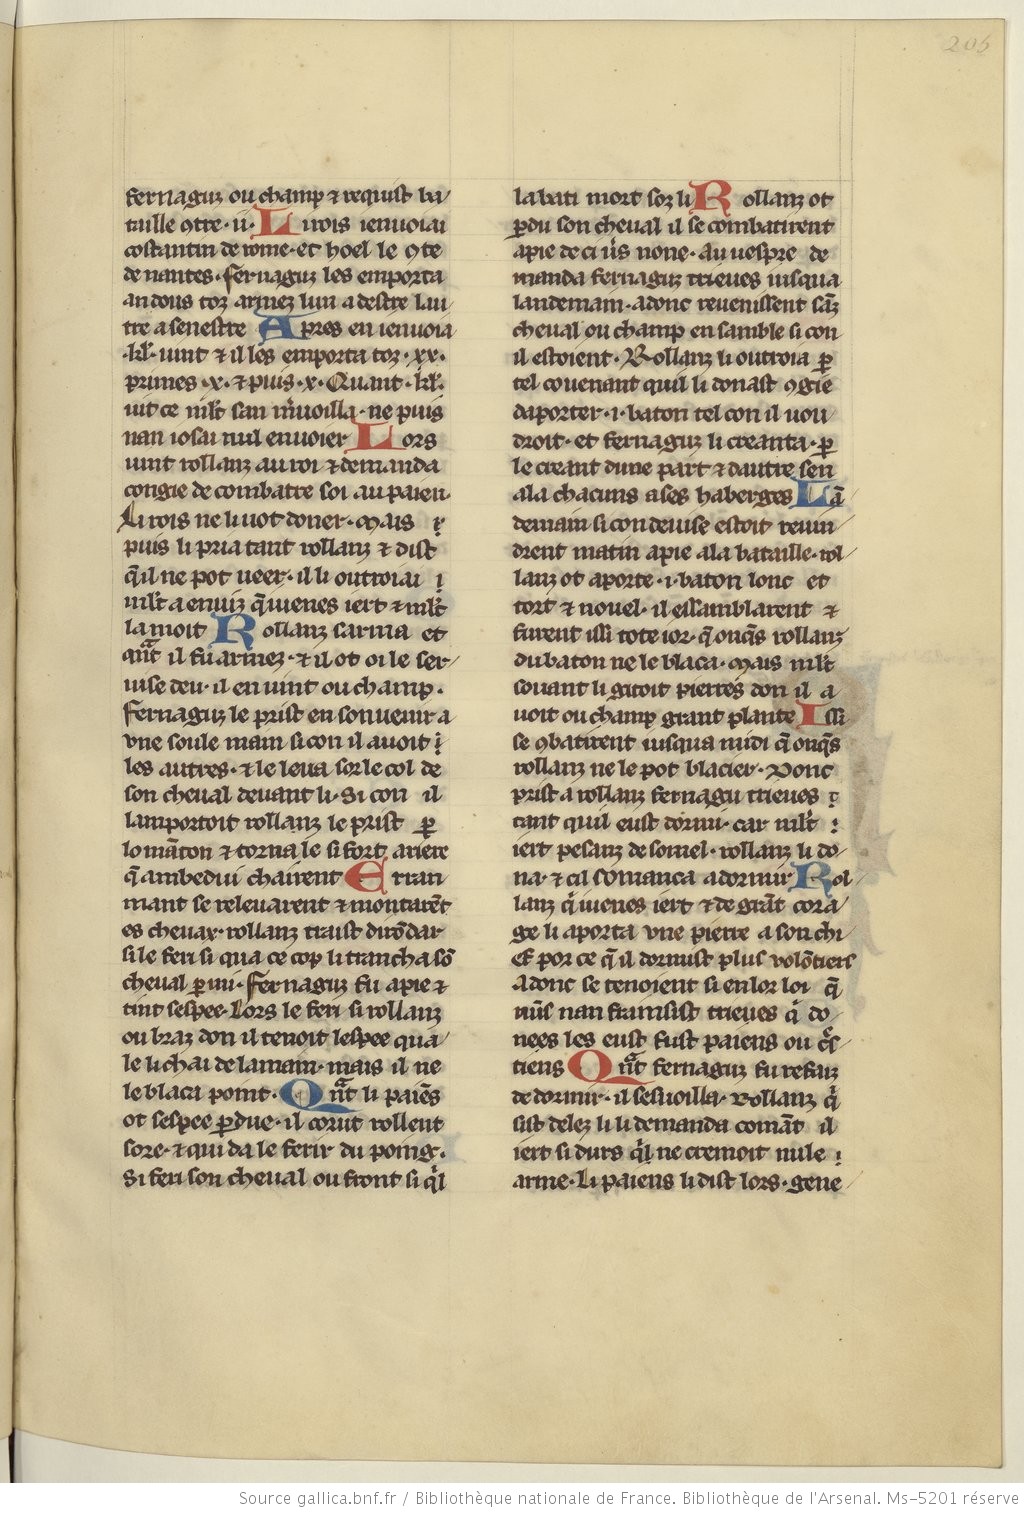 205
fernaguz ou champ ⁊ requist ba/
taille ꝯtre · ii · Li rois ienuoiai
costantin de rome · et hoel le ꝯte
de nantes · fernaguz les emporta
andous toz armez lun a destre lau/
tre a senestre Apres en ienuoia
· kł · uint ⁊ il les emporta toz · xx ·
primes · x · ⁊ puis · x · Quant · kł ·
uit ce mlt̃ san m̃uoilla · ne puis
nan iosai nul enuoier Lors
uint rollanz au roi ⁊ demanda
congie de combatre soi au paien ·
Li rois ne li uot doner · mais
puis li pria tant rollanz ⁊ dist
q̃ il ne pot ueer · il li outroiai
mlt̃ a enuiz q̃ iuenes iert ⁊ mlt̃
lamoit Rollanz sarma et
qñt il fu armez · ⁊ il ot oi le ser/
uise deu · il en uint ou champ ·
fernaguz le prist en son uenir a
vne soule main si con il auoit
les autres · ⁊ le leua sor le col de
son cheual deuant li · Si con il
lamportoit rollanz le prist ꝑ
lo mãton ⁊ torna le si fort ariere
q̃ ambedui chairent Erran
mant se releuarent ⁊ montarẽt
es cheuax · rollanz traist durõdar
si le feri si qua ce cop li trancha sõ
cheual ꝑ mi · fernaguz fu apie ⁊
tint sespee · Lors le feri si rollanz
ou braz don il tenoit lespee qua/
le li chai de la main · mais il ne
le blaca point · Qñt li paiẽs
ot sespee ꝑdue · il corut rollent
sore · ⁊ qui da le ferir du poing ·
Si feri son cheual ou front si q̃l
labati mort soz li Rollanz ot
ꝑdu son cheual il se combatirent
apie de ci ũs none · Au uespre de
manda fernaguz trieues iusqua
landemain · adonc reuenissent sãz
cheual ou champ ensamble si con
il estoient · Rollanz li outroia ꝑ
tel couenant quil li donast ꝯgie
daporter · i · baton tel con il uou/
droit · et fernaguz li creanta · ꝑ
le creant dune part ⁊ dautre sen
ala chacuns a ses haberges Lã
demain si con deuise estoit reuin/
drent matin apie a la bataille · rol/
lanz ot aporte · i · baton lonc et
tort ⁊ nouel · il essamblarent ⁊
furent issi tote ior · q̃ onq̃s rollanz/
du baton ne le blaca · mais mlt̃
souant li gitoit pierres don il a
uoit ou champ grant plante Issi
se ꝯbatirent iusqua midi q̃ onq̃s
rollanz ne le pot blacier · Donc
prist a rollanz fernagu trieues
tant quil eust dormi · car mlt̃
iert pesanz de somel · rollanz li do/
na · ⁊ cil comanca a dormir Rol/
lanz q̃ iuenes iert ⁊ de grãt cora/
ge li aporta vne pierre a son chi/
ef por ce q̃ il dormist plus volõtiers
Adonc se tenoient si en lor loi q̃
nũs nan frainsist trieues q̃ do/
nees les eust fust paiens ou c̃s/
tiens Qñt fernaguz fu refaiz
de dormir · il sesuoilla · Rollanz q̃
sist delez li li demanda comãt il
iert si durs q̃l ne cremoit nule
arme · Li paiens li dist lors · gene/
Source gallica.bnf.fr / Bibliothèque nationale de France. Bibliothèque de l'Arsenal. Ms-5201 réserve